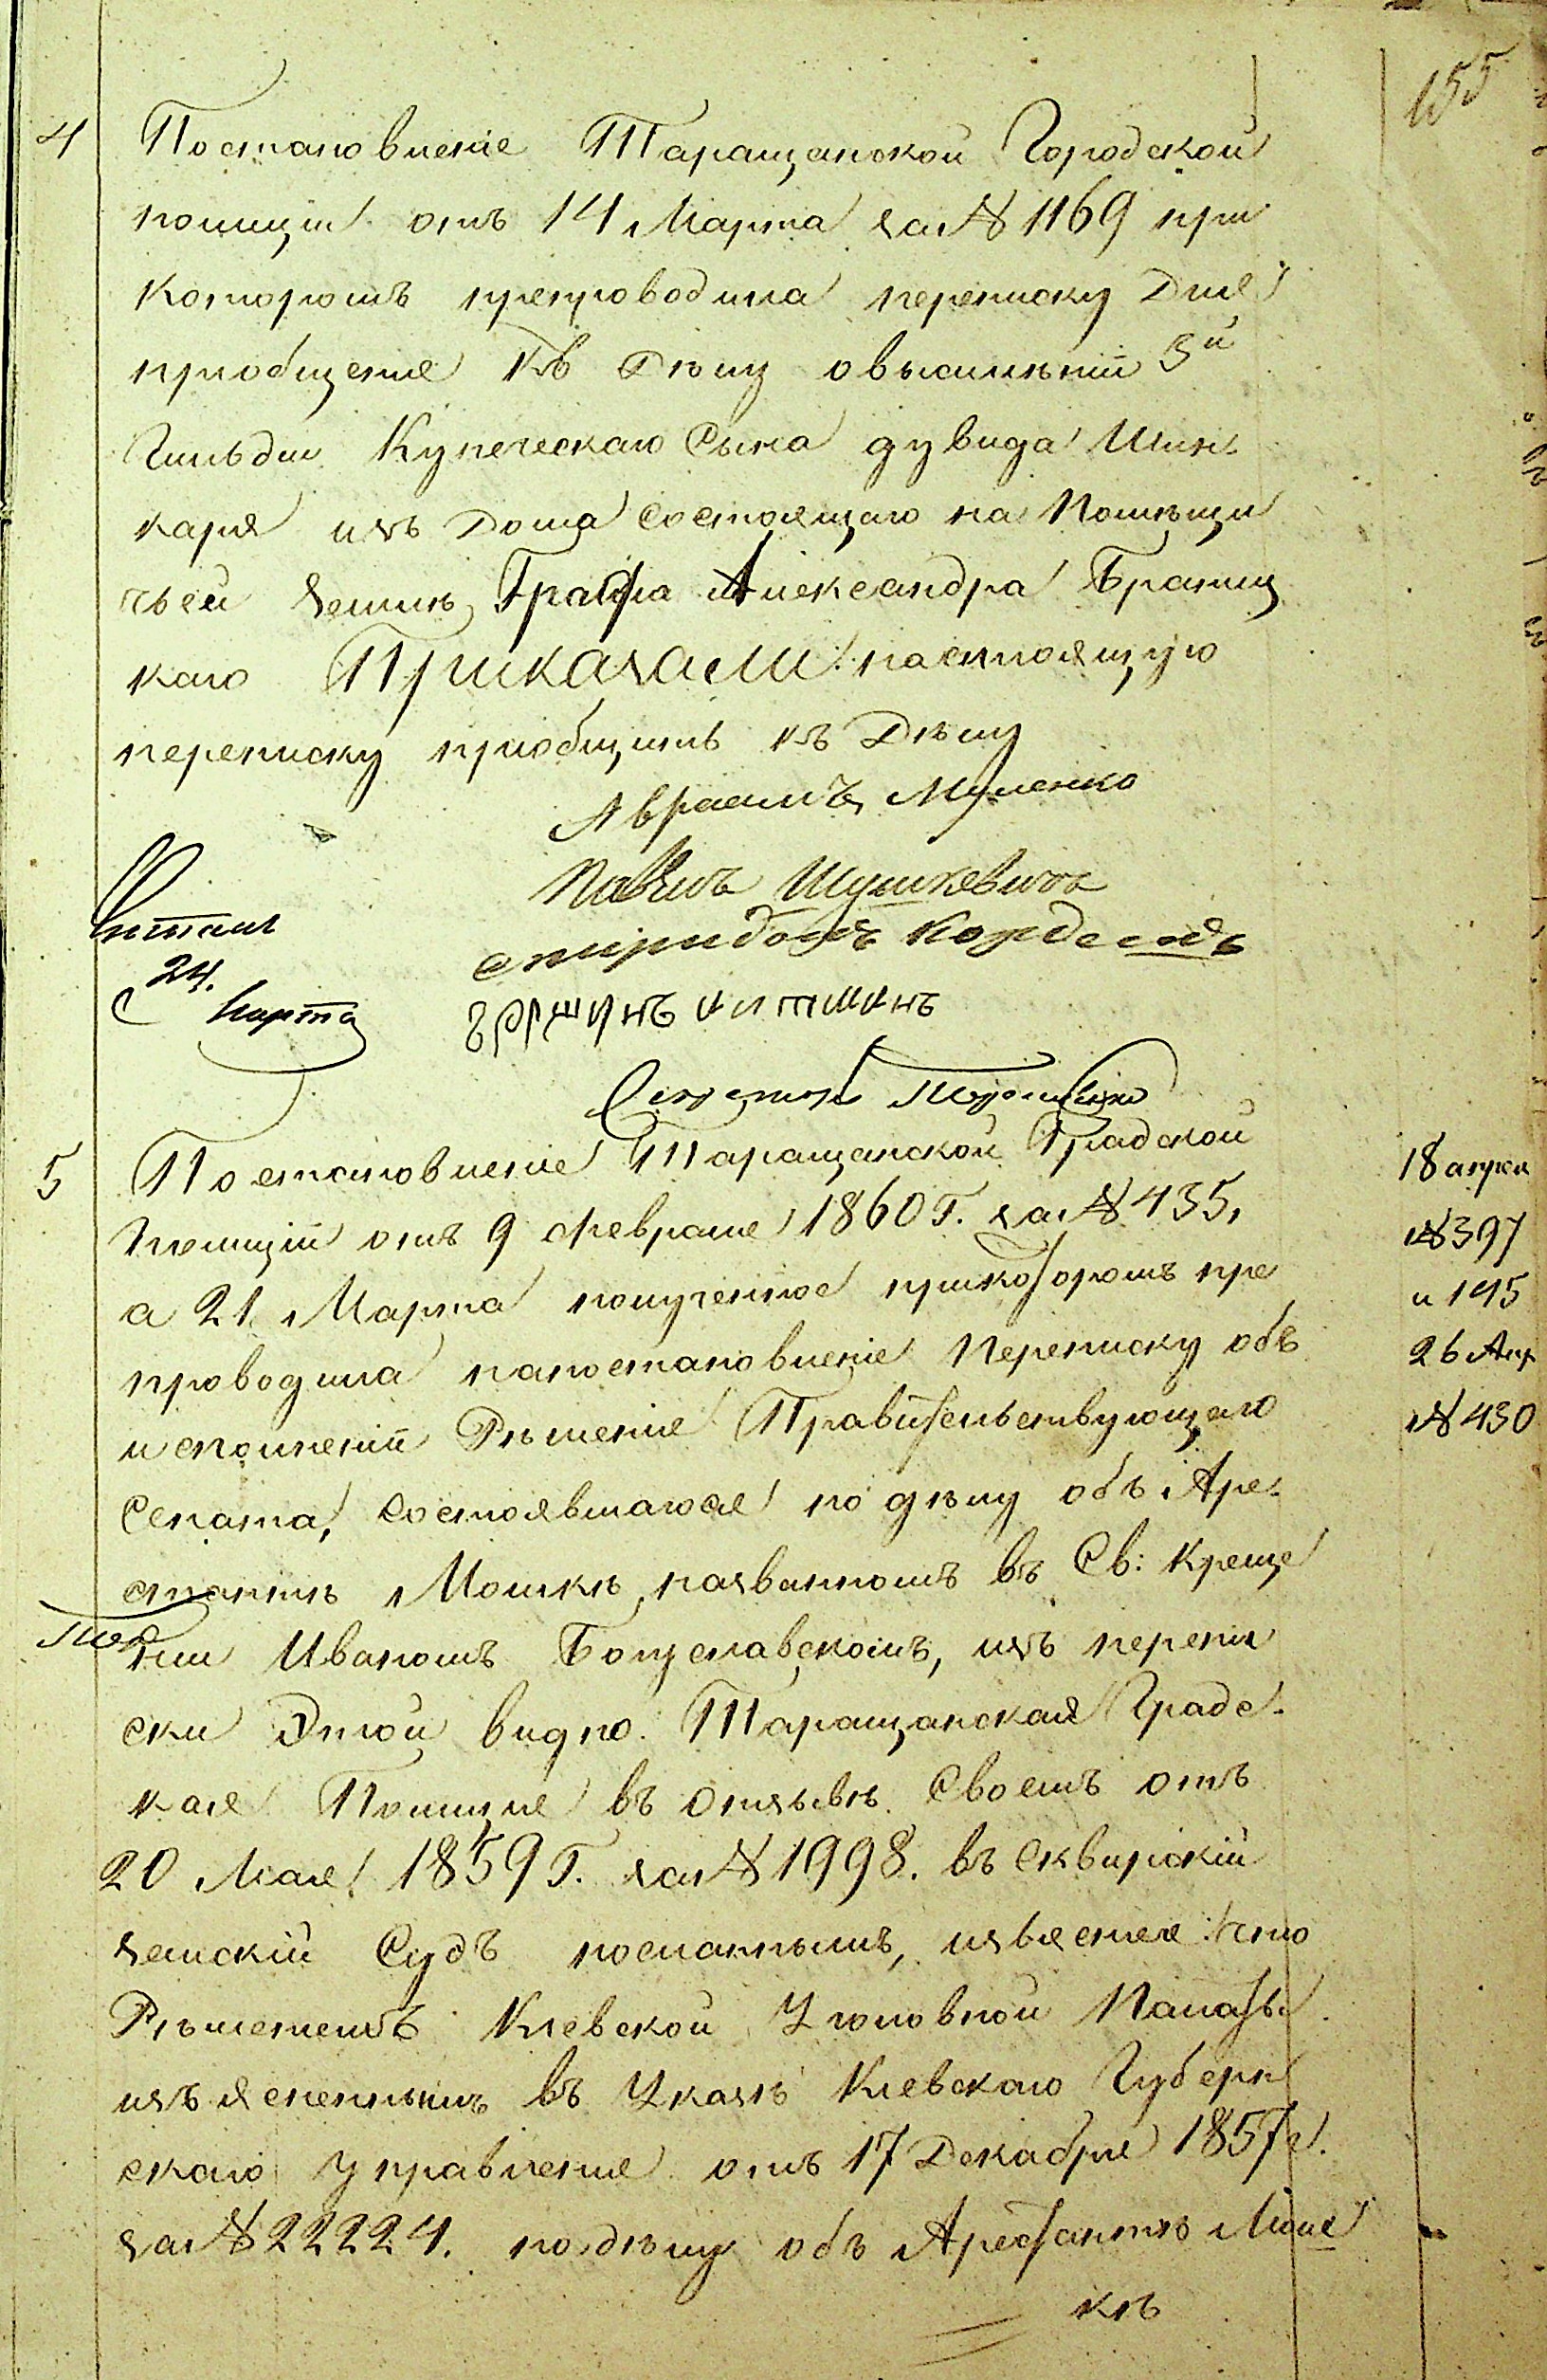 155
4 Постановленіе Таращанской Городской
полиціи отъ 14 Марта за № 1169 при
которомъ препроводила переписку Для
пріобщенія къ Дѣлу о высылкѣ 3й
Гильдіи Купеческаго Сына дувида Шин-
каря изъ Дома состоящаго на Помѣщи
чьей Землѣ Графа Александра Браниц
каго Приказали: настоящую
переписку пріобщить къ Дѣлу
Авраамъ
Павелъ Шушкевичъ
спиридонъ
Читалъ
24.
Марта
5 Постановленіе Таращанской Градской
Полиціи отъ 9 февраля 1860 Г. за № 435,
а 21 Марта полученное при которомъ пре
проводила на постановленіе Переписку объ
исполненіи Рѣшенія Правительствующаго
Сената, состоявшагося по дѣлу объ Аре-
стантѣ Мошкѣ, названномъ въ Св: Креще
ніи Иваномъ Богуславскомъ, изъ перепи
ски Этой видно: Таращанская Градс-
кая Полиція въ отзывѣ Своемъ отъ
20 Мая 1859 Г. за № 1998. въ Сквирскій
Земскій Судъ посланнымъ, извѣстя: что
Рѣшеніемъ Кіевской Уголовной Палаты
изъясненнымъ въ Указѣ Кіевскаго Губерн
скаго Управленія отъ 17 Декабря 1857 г.
за № 22224. по дѣлу объ Арестантѣ Мош
кѣ
18 апреля
№ 397
и 195
26 Апр
№ 430